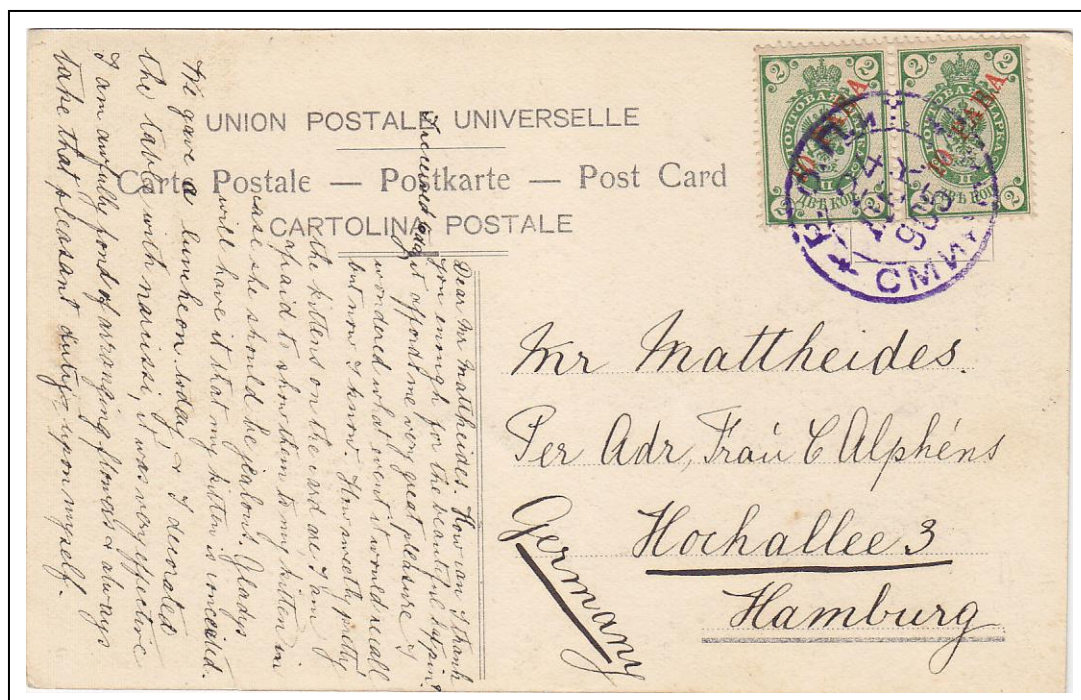 UNION POSTALE UNIVERSELLE
Carte Postale — Postkarte — Post Card
CARTOLINA POSTALE
2 2
ПОЧТОВАЯ МАРКА
10 ПАРА
ДВѢ КОП.
2 2
2 2
ПОЧТОВАЯ МАРКА
10 ПАРА
ДВѢ КОП.
2 2
СМИРНА
Mr Mattheides.
Per Adr, Fraü C Alphéns
Hochallee 3
Hamburg
Germany
Dear Mr Mattheides. How can I thank
you enough for the beautiful
it afford me very great pleasure I
wondered what went it would recall
but now I know. How sweetly pretty
the kittens on the card are, I am
afraid to show them to my kitten in
case she should be jealous. Gladys
will have it that my kitten is conceited.
We gave a luncheon today & I decorated
the table with narcissi, it was very effective
I am awfully fond of arranging flowers & always
take that pleasant duty upon myself.